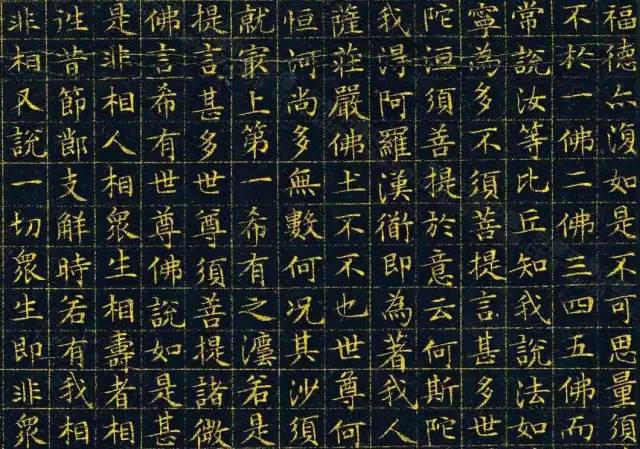 福德亦復如是不可思量須
不於一佛二佛三四五佛而
常說汝等比丘知我說法如
寧為多不須菩提言甚多世
陀洹須菩提於意云何斯陀
我得阿羅漢衟即為著我人
薩莊嚴佛土不不也世尊何
恒河尚多無數何况其沙須
就最上第一希有之灋若是
提言甚多世尊須菩提諸微
佛言希有世尊佛說如是甚
是非相人相眾生相壽者相
往昔節節支解時若有我相
非相又說一切眾生即非眾